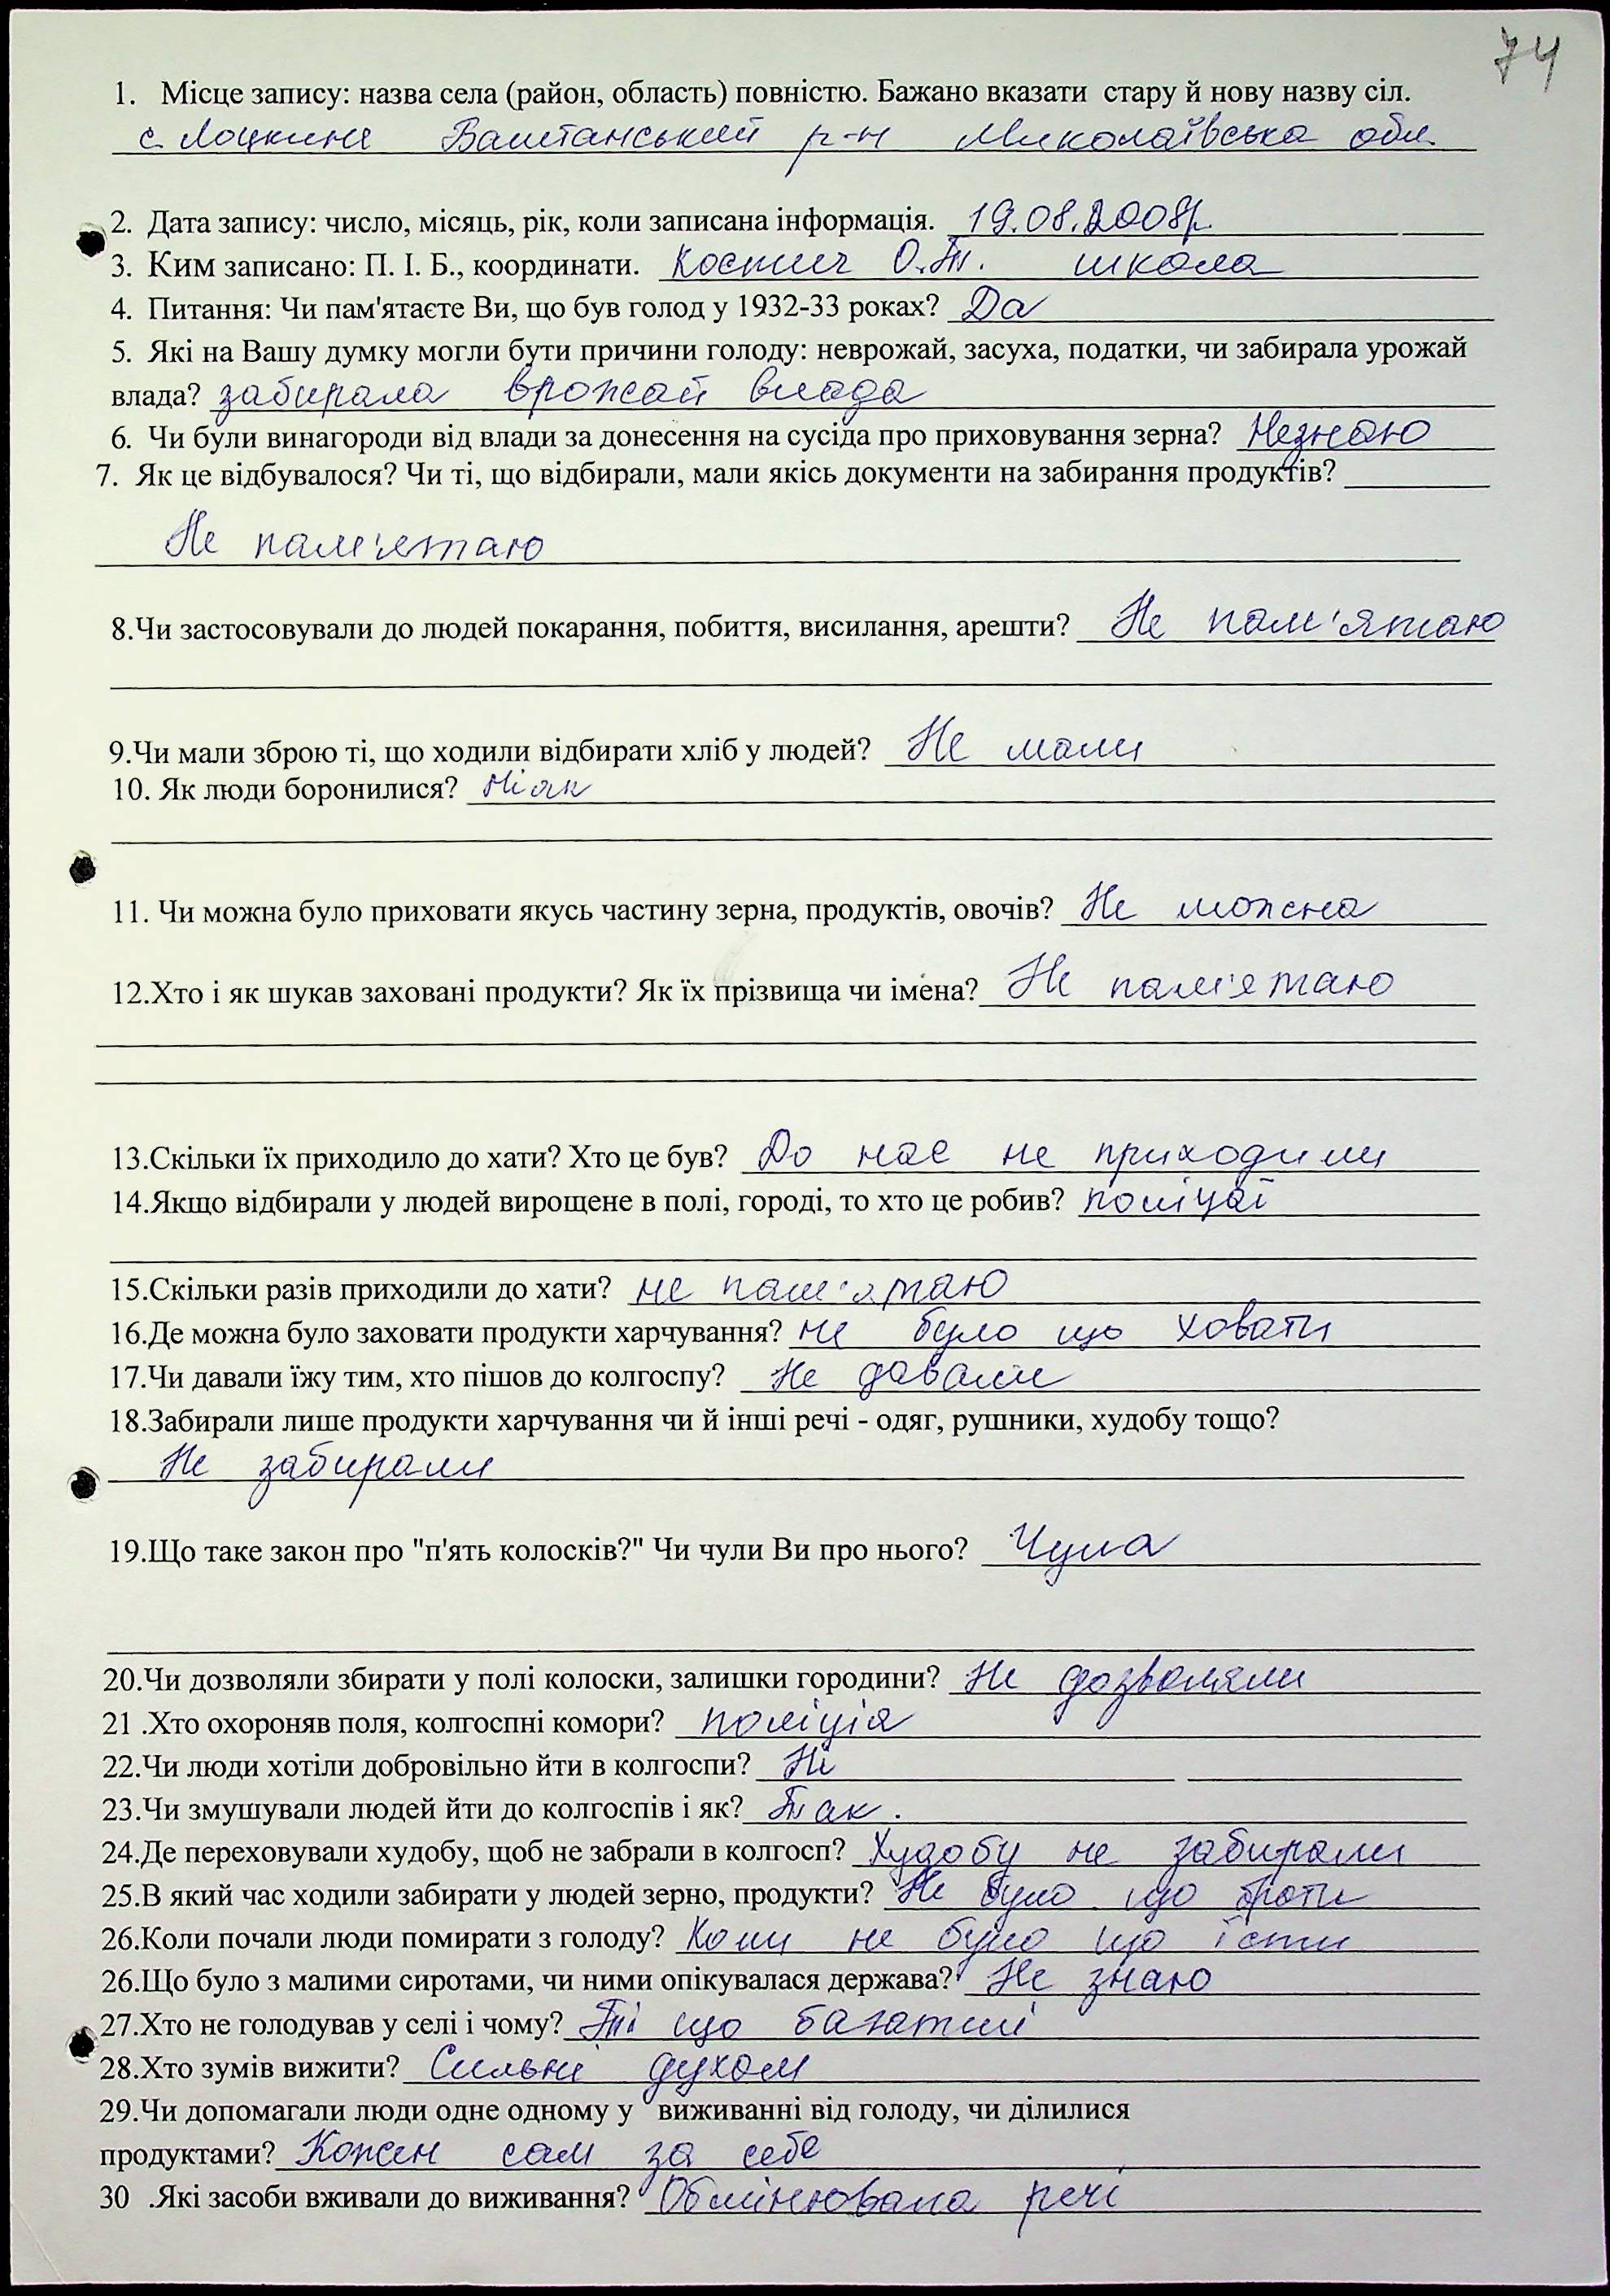 74
1. Місце запису: назва села (район, область) повністю. Бажано вказати стару й нову назву сіл.
с. Лоцкине Баштанський р-н Миколаївська обл.
2. Дата запису: число, місяць, рік, коли записана інформація. 19.08.2008р.
3. Ким записано: П. І. Б., координати. Костич О.Т. школа
4. Питання: Чи пам'ятаєте Ви, що був голод у 1932-33 роках? Да
5. Які на Вашу думку могли бути причини голоду: неврожай, засуха, податки, чи забирала урожай
влада? забирала врожай влада
6. Чи були винагороди від влади за донесення на сусіда про приховування зерна? Незнаю
7. Як це відбувалося? Чи ті, що відбирали, мали якісь документи на забирання продуктів?
Не пам'ятаю
8.Чи застосовували до людей покарання, побиття, висилання, арешти? Не пам'ятаю
9.Чи мали зброю ті, що ходили відбирати хліб у людей? Не мали
10. Як люди боронилися? Ніяк
11. Чи можна було приховати якусь частину зерна, продуктів, овочів? Не можна
12.Хто і як шукав заховані продукти? Як їх прізвища чи імена? Не пам'ятаю
13.Скільки їх приходило до хати? Хто це був? До нас не приходили
14.Якщо відбирали у людей вирощене в полі, городі, то хто це робив? поліцаї
15.Скільки разів приходили до хати? не пам'ятаю
16.Де можна було заховати продукти харчування? не було що ховати
17.Чи давали їжу тим, хто пішов до колгоспу? Не давали
18.Забирали лише продукти харчування чи й інші речі - одяг, рушники, худобу тощо?
Не забирали
19.Що таке закон про "п'ять колосків?" Чи чули Ви про нього? Чула
20.Чи дозволяли збирати у полі колоски, залишки городини? Не дозволяли
21 .Хто охороняв поля, колгоспні комори? поліція
22.Чи люди хотіли добровільно йти в колгоспи? Ні
23.Чи змушували людей йти до колгоспів і як? Так.
24.Де переховували худобу, щоб не забрали в колгосп? Худобу не забирали
25.В який час ходили забирати у людей зерно, продукти? Не було що брати
26.Коли почали люди помирати з голоду? Коли не було що їсти
26.Що було з малими сиротами, чи ними опікувалася держава? Не знаю
27.Хто не голодував у селі і чому? Ті що багатші
28.Хто зумів вижити? Сильні духом
29.Чи допомагали люди одне одному у виживанні від голоду, чи ділилися
продуктами? Кожен сам за себе
30 .Які засоби вживали до виживання? Обмінювала речі